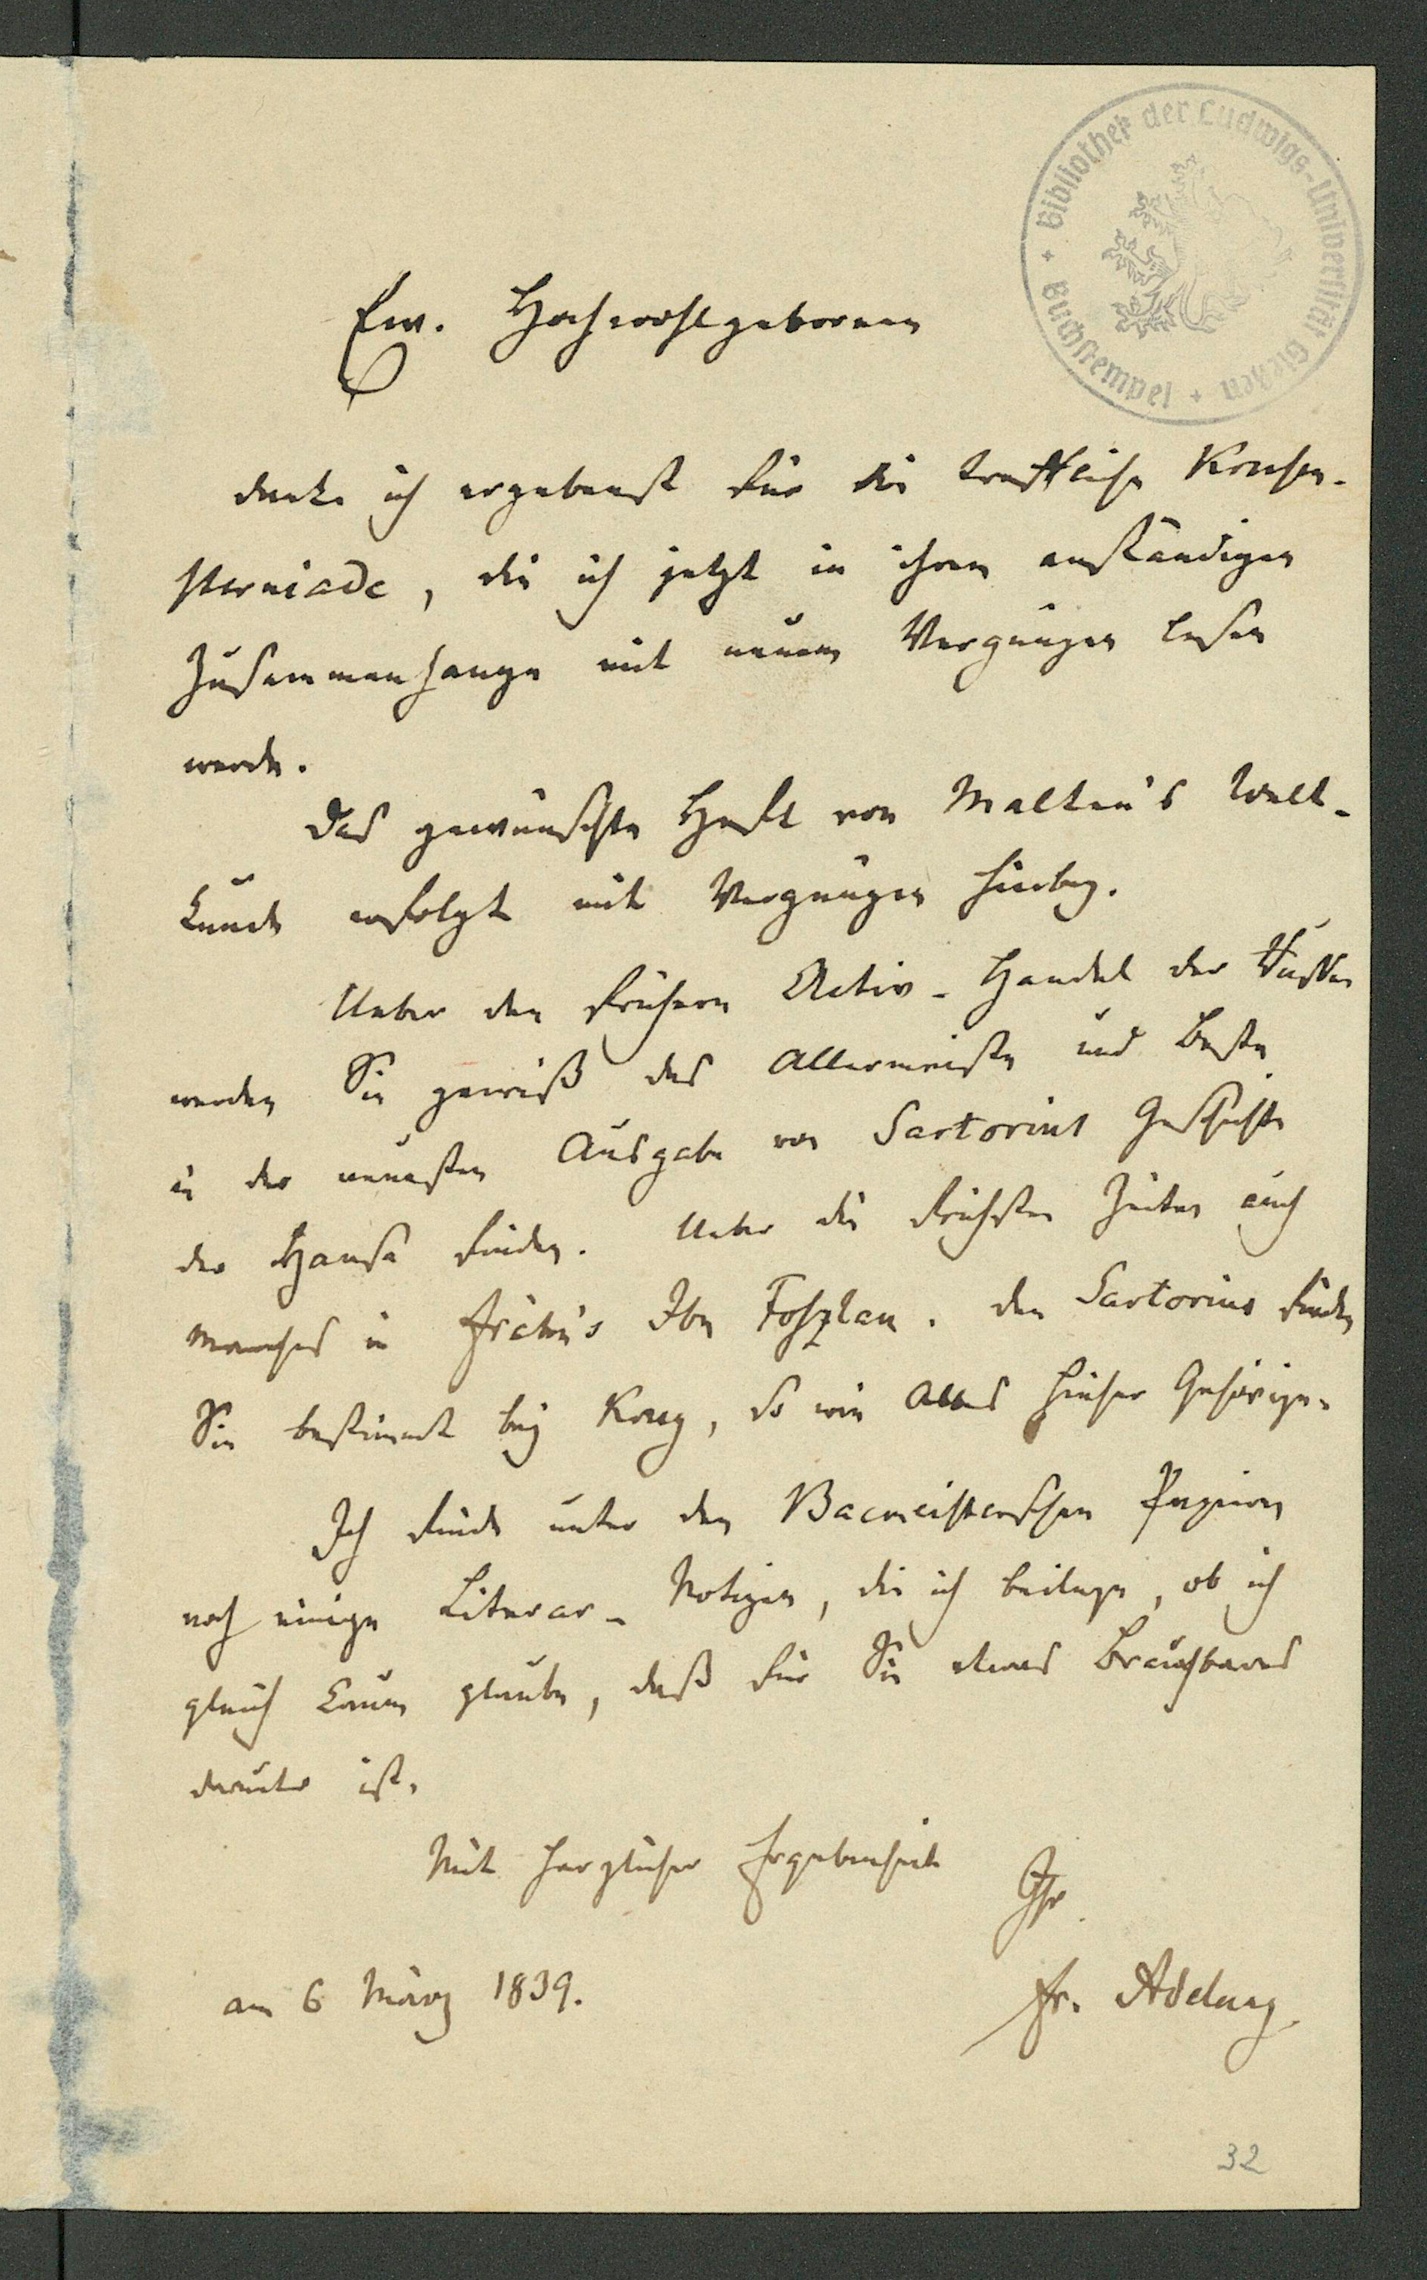 Bibliothek der Ludwigs-Universität Gießen
Buchstempel
Ew. Hochwohlgebornen
danke ich ergebenst für die treffliche Krusen-
sterniade, die ich jetzt in ihrem anständigen
Zusammenhange mit neuem Vergnügen lesen
werde.
Das gewünschte Heft von Malten's Welt-
kunde erfolgt mit Vergnügen hierbey.
Ueber den frühern Activ-Handel der Russen
werden Sie gewiß das Allermeiste und Beste
in der neuesten Ausgabe von Sartorius Geschichte
der Hansa finden. Ueber die frühsten Zeiten auch
manches in Frähn's Ibn Foszlan. Den Sartorius finden
Sie bestimmt bey Krug, so wie alles hieher Gehörige.
Ich finde unter den Bacmeisterschen Papieren
noch einige Literar-Notizen, die ich beilege, ob ich
gleich kaum glaube, daß für Sie etwas Brauchbares
darunter ist.
Mit herzlicher Ergebenheit
Ihr
am 6 März 1839.
Fr. Adelung
32